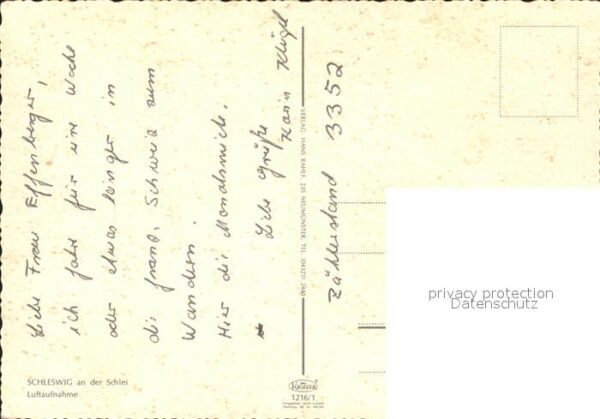 Liebe Frau Effenberger,
ich fahre für eine Woche
oder etwas länger in
die franz. Schweiz zum
Wandern.
Hier die Monatsmiete.
Liebe Grüße
Karin
Zählerstand 3352
VERLAG HANS RAHLF 235 NEUMÜNSTER, TEL. (04321) 2440
SCHLESWIG an der Schlei
Luftaufnahme
Krüger
1216/1
privacy protection
Datenschutz